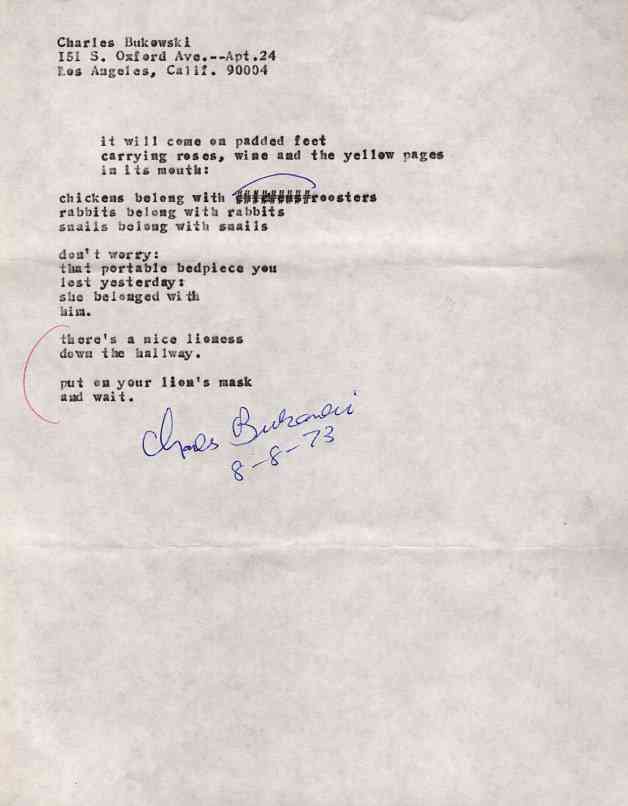 Charles Bukowski
151 S. Oxford Ave.--Apt.24
Los Angeles, Calif. 90004
it will come on padded feet
carrying roses, wine and the yellow pages
in its mouth:
chickens belong with #########roosters
rabbits belong with rabbits
snails belong with snails
don't worry:
that portable bedpiece you
lost yesterday:
she belonged with
him.
there's a nice lioness
down the hallway.
put on your lion's mask
and wait.
Charles Bukowski
8-8-73